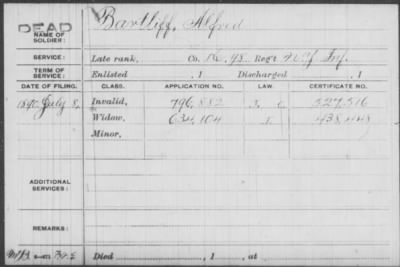 DEAD
NAME OF SOLDIER: Bartliff, Alfred
SERVICE: Late rank, Co. K, 98 Reg't N.Y. Inf.
TERM OF SERVICE: Enlisted , 1 Discharged , 1
DATE OF FILING. CLASS. APPLICATION NO. LAW. CERTIFICATE NO.
1890 July 8, Invalid, 796,882 527,516
Widow, 634,104 438,448
Minor,
ADDITIONAL SERVICES:
REMARKS:
Died , 1 , at